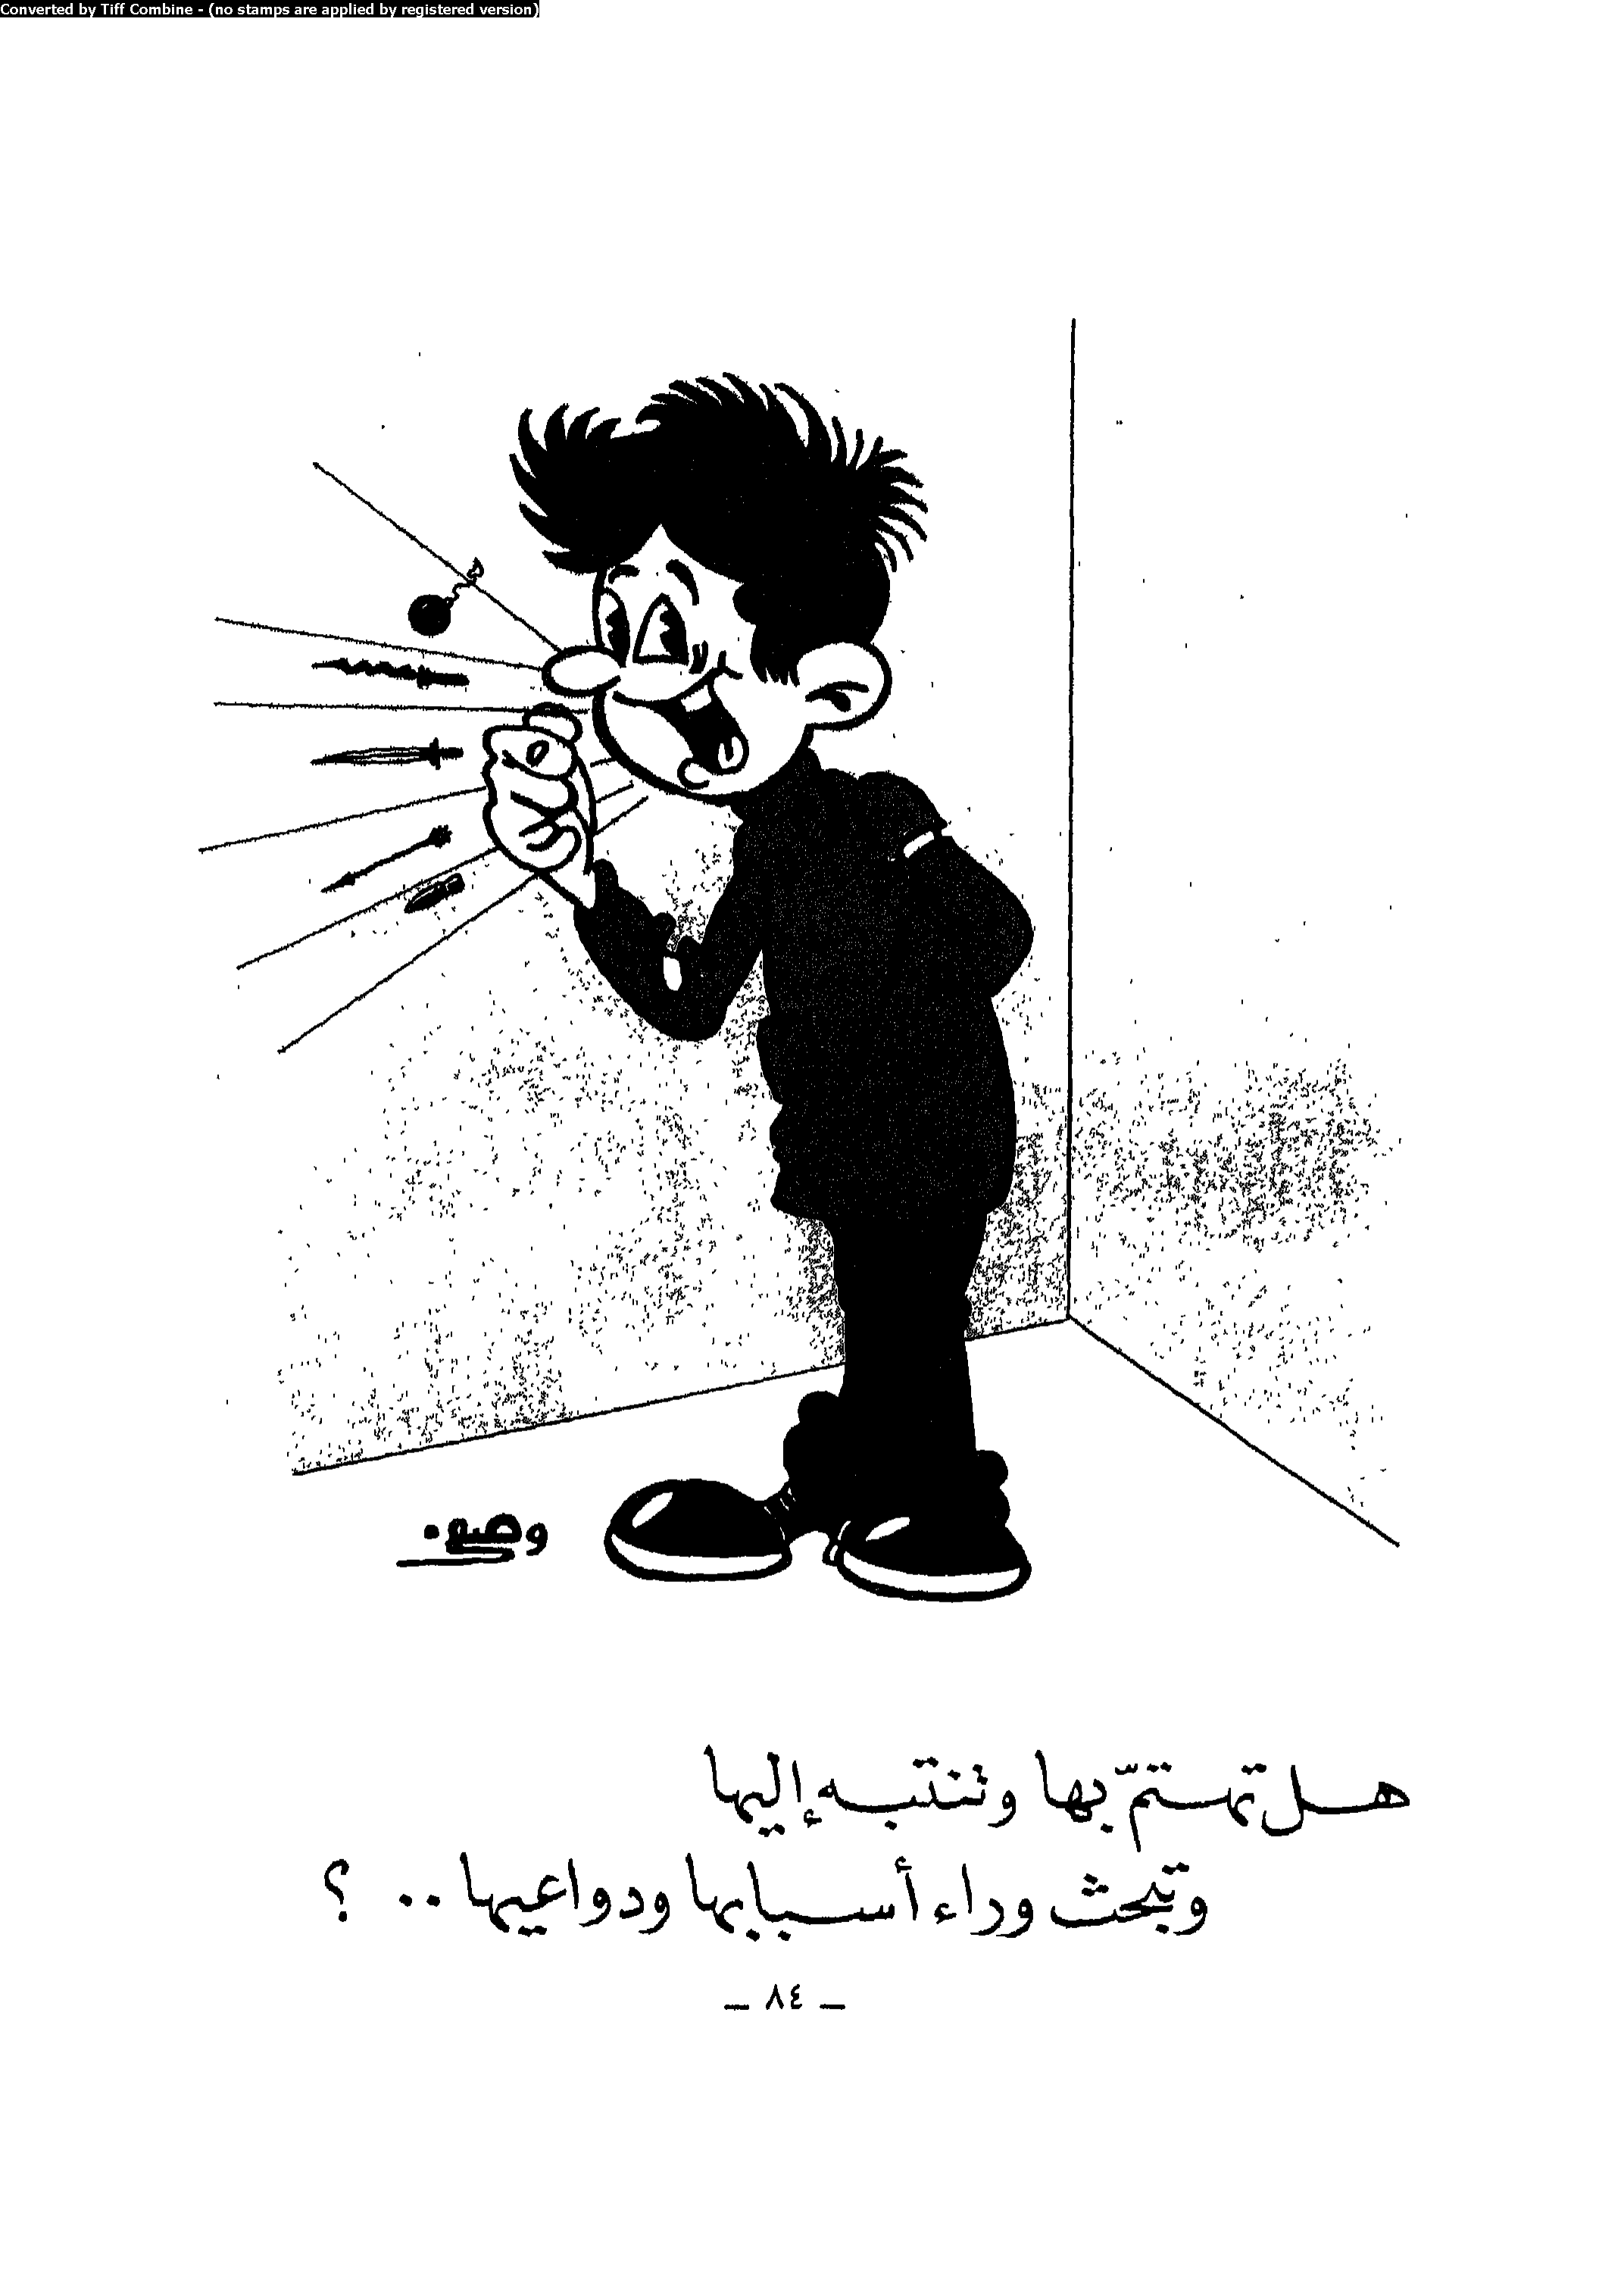 Converted by Tiff Combine - (no stamps are applied by registered version)
هل تهتمّ بها وتنتبه إليها
وتبحث وراء أسبابها ودواعيها .. ؟
– ٨٤ –